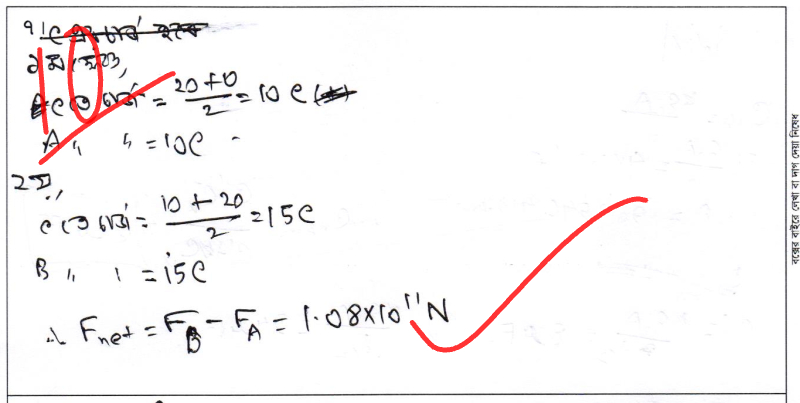 ৭।
১ম ক্ষেত্রে,
C তে চার্জ = \frac{20+0}{2} = 10 C
A " " = 10C
২য়,
C তে চার্জ = \frac{10+20}{2} = 15C
B " " = 15C
∴ F_{net} = F_B - F_A = 1.08×10^{11} N
বক্সের বাইরে লেখা বা দাগ দেয়া নিষেধ